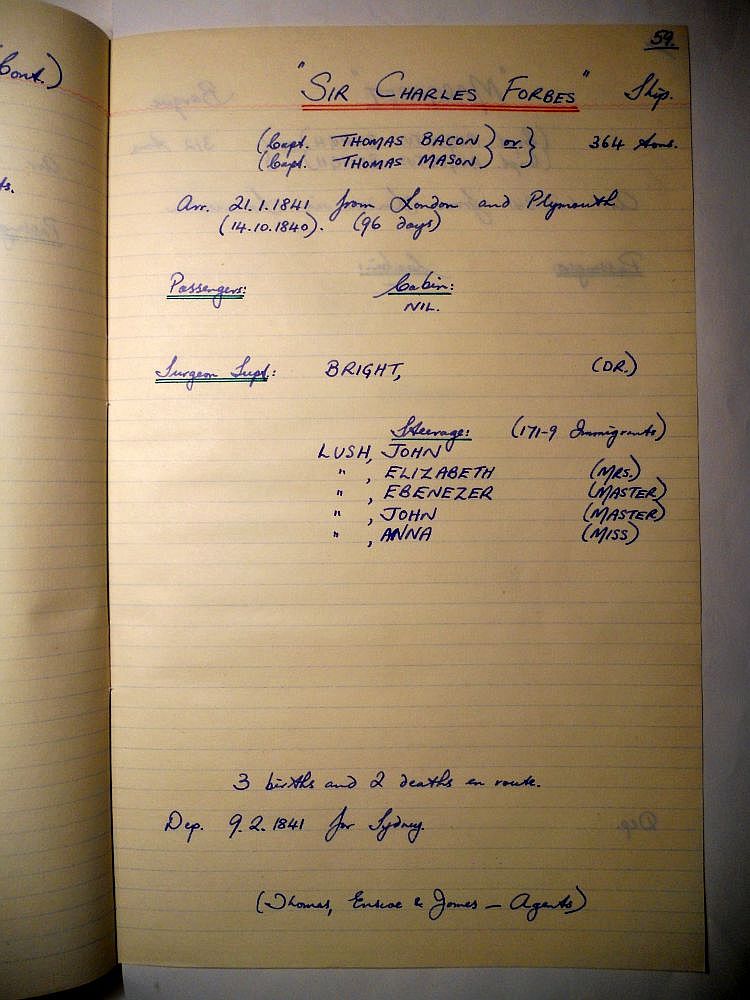 Cont.)
ts.
59.
"SIR CHARLES FORBES" Ship.
(Capt. THOMAS BACON} or } 364 tons.
(Capt. THOMAS MASON}
Arr. 21.1.1841 from London and Plymouth
(14.10.1840). (96 days)
Passengers: Cabin:
NIL.
Surgeon Supt.: BRIGHT, (DR.)
Steerage: (171-9 Immigrants)
LUSH, JOHN
" , ELIZABETH (MRS.)
" , EBENEZER (MASTER)
" , JOHN (MASTER)
" , ANNA (MISS)
3 births and 2 deaths en route.
Dep. 9.2.1841 for Sydney.
(Thomas, Enscoe & James — Agents)